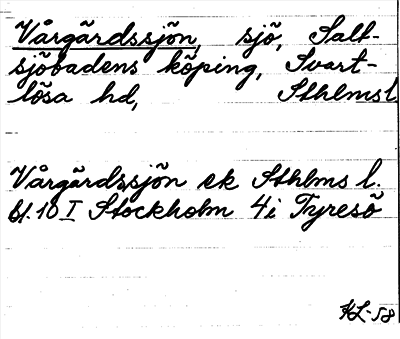 Vårgärdssjön, sjö, Salt-
sjöbadens köping, Svart-
lösa hd, Sthlmsl.
Vårgärdssjön ek Sthlms l.
bl. 10 I Stockholm 4i Tyresö
KL-58